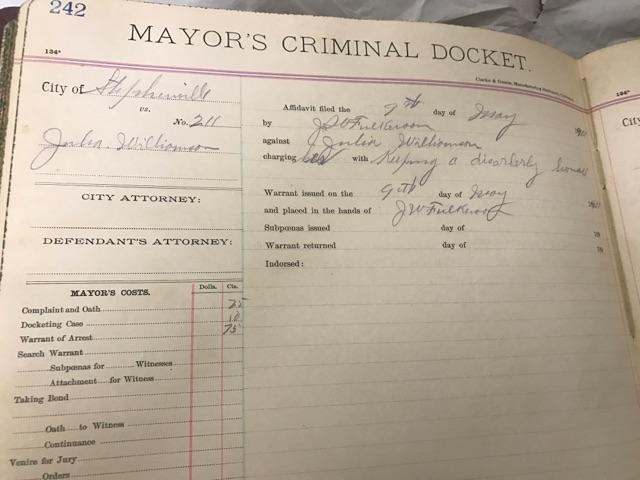 242
MAYOR'S CRIMINAL DOCKET.
134*
134*
Clarke & Courts, Manufacturing Stationers, Galveston
City of Stephenville
vs.
No. 211
Julia Williamson
CITY ATTORNEY:
DEFENDANT'S ATTORNEY:
MAYOR'S COSTS. Dolls. Cts.
Complaint and Oath 25
Docketing Case 10
Warrant of Arrest 75
Search Warrant
Subpœnas for Witnesses
Attachment for Witness
Taking Bond
Oath to Witness
Continuance
Venire for Jury
Orders
Affidavit filed the 9th day of May
by J W Fulkerson
against Julia Williamson
charging her with Keeping a disorderly house
Warrant issued on the 9th day of May
and placed in the hands of J W Fulkerson
Subpœnas issued day of 19
Warrant returned day of 19
Indorsed:
City